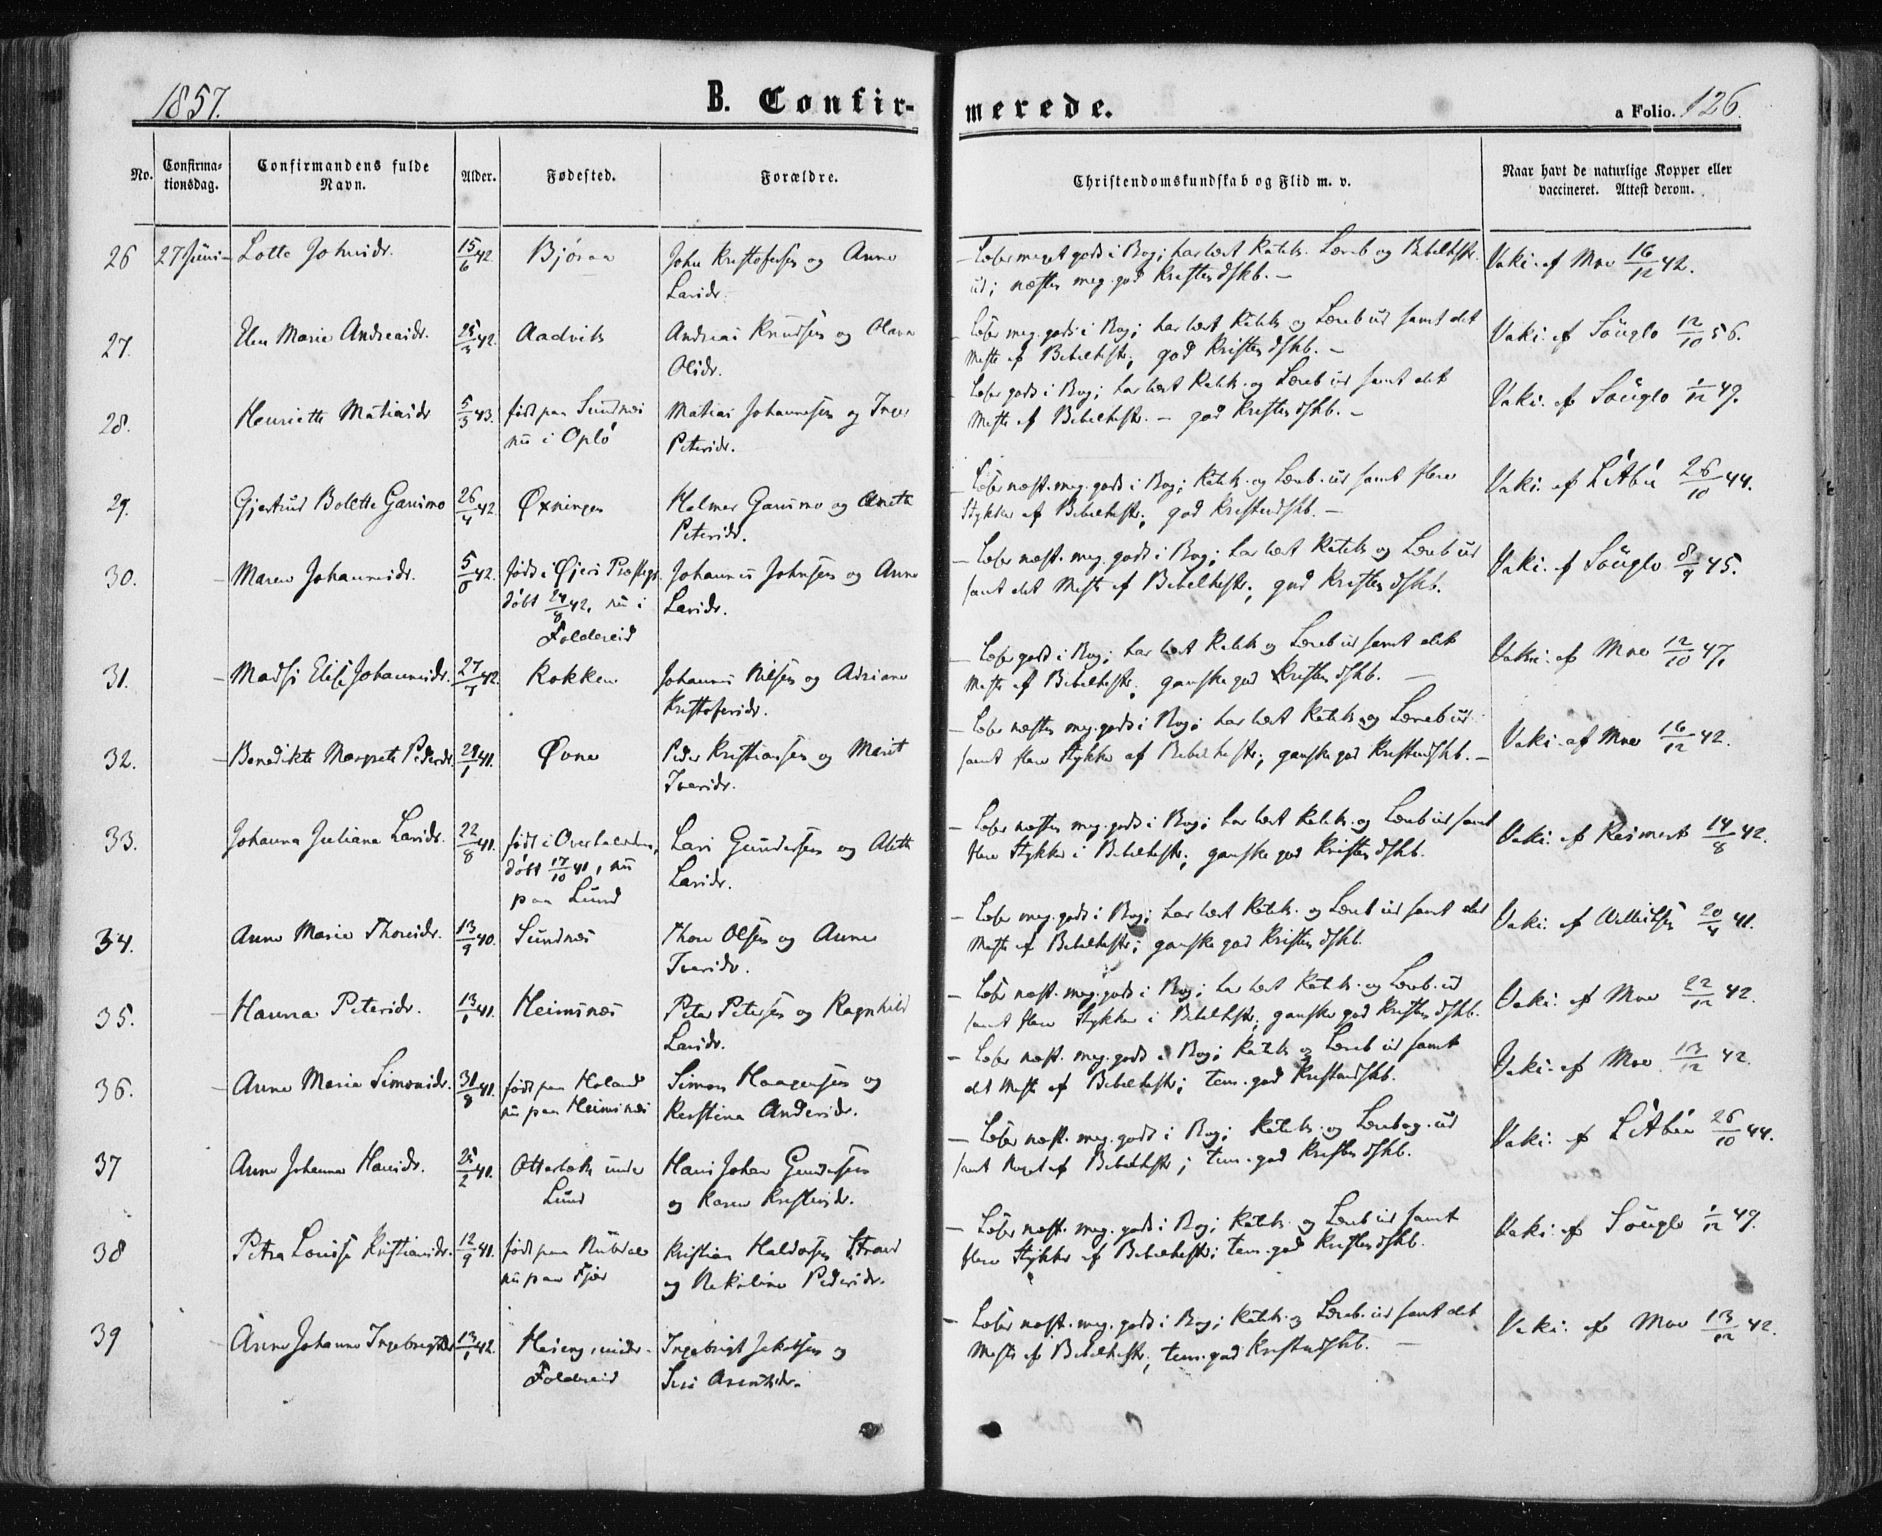 1857.
B. Confir-
merede.
a Folio. 126.
No.
Confirma-
tionsdag.
Confirmandens fulde
Navn.
Alder.
Fødested.
Forældre.
Christendomskundskab og Flid m. v.
Naar havt de naturlige Kopper eller
vaccineret. Attest derom.
26 27 Juni - Lotte Johnsdr. 15/6 42 Björaa John Kristofersen og Anne
Larsdr.
- Læser meget godt i Bog; har lært Katek. Læreb og Bibelhistr.
ud; næsten meg. god Kristendskb. -
Vaki. af Moe 16/12 42.
27. Elen Marie Andreasdr. 25/3 42. Aadvik Andreas Knudsen og Olava
Olsdr.
- Læser meg. godt i Bog; har lært Katek og Læreb ud samt det
Meste af Bibelhistr; god Kristendskb. -
Vaki. af Söuglo 12/10 56.
28. Henriette Matiasdr 5/3 43. født paa Sundnæs
nu i Oplö
Matias Johannesen og Inger
Petersdr.
Læser godt i Bog; har lært Katek. og Læreb ud samt det
Meste af Bibelhistr. - god Kristendskb. -
Vaki. af Söuglo 1/12 49.
29. Gjertrud Bolette Gansmo 26/4 42. Øxningen Holmer Gansmo og Aneth
Petersdr.
- Læser næst. meg. godt i Bog; Katek. og Læreb. ud samt flere
Stykker af Bibelhistr; god Kristendskb. -
Vaki. af L'Abée 26/10 44.
30. - Maren Johannesdr. 5/8 42. født i Øjers Præstegd.
döbt 24/8 42, nu i
Foldereid
Johannes Johnsen og Anne
Larsdr.
- Læser næst. meg. godt i Bog; har lært Katek og Læreb ud
samt det Meste af Bibelhistr; god Kristendskb.
Vaki. af Söuglo 8/9 45.
31. - Madsi Elise Johannesdr. 27/7 42. Kokken Johannes Nilsen og Adriane
Kristofersdr.
- Læser godt i Bog; har lært Katek og Læreb ud samt det
Meste af Bibelhistr; ganske god Kristendskb. -
Vaki. af Moe 12/10 47.
32. - Benedikte Margrete Pedersdr 29/1 41. Øvne Peder Kristiansen og Marit
Iversdr.
- Læser næsten meg. godt i Bog; har lært Katek og Læreb ud
samt flere Stykker af Bibelhistr; ganske god Kristendskb. -
Vaki. af Moe 16/12 42.
33. Johanna Juliana Larsdr. 22/8 41. født i Overhalvden,
döbt 17/10 41, nu
paa Lund
Lars Gundersen og Aleth
Larsdr.
- Læser næsten meg. godt i Bog; har lært Katek. og Læreb ud samt
flere Stykker i Bibelhistr; ganske god Kristendskb.
Vaki. af 14/8 42.
34. Anne Marie Thoresdr. 13/9 40. Sundnæs Thore Olsen og Anne
Iversdr.
- Læser meg. godt i Bog; har lært Katek. og Læreb ud samt det
Meste af Bibelhistr; ganske god Kristendskb.
Vaki. af 20/4 41.
35. - Hanna Petersdr. 13/1 41. Heimsnæs Peter Petersen og Ragnhild
Larsdr.
- Læser næst. meg. godt i Bog; har lært Katek. og Læreb. ud
samt flere Stykker i Bibelhistr; ganske god Kristendskb.
Vaki. af Moe 22/12 42.
36. - Anne Maria Simonsdr. 31/8 41. født paa Holand
nu paa Heimsnæs
Simon Haagensen og
Kerstina Andersdr.
- Læser næst. meg. godt i Bog; Katek og Læreb ud samt
det Meste af Bibelhistr; tem. god Kristendskb.
Vaki. af Moe 13/12 42
37 Anne Johanna Hansdr. 25/2 41. Otterbæk under
Lund
Hans Johan Gundersen
og Karen Kristensdr.
- Læser næst. meg. godt i Bog; Katek. og Lærebog. ud
samt Noget af Bibelhistr; tem. god Kristendskb.
Vaki. af L'Abée 26/10 44.
38 Petra Louise Kristiansdr. 12/9 41. født paa
nu paa Fjær
Kristian Haldorsen Strand
og Nekoline Pedersdr.
- Læser næst. meg. godt i Bog; Katek. og Læreb ud samt
flere Stykker af Bibelhistr; tem. god Kristendskb.
Vaki. af Söuglo 1/12 49.
39 - Anne Johanna Ingebrigtsdr 13/1 42. under
Foldereid
Ingebrigt Jakobsen og
- Læser næst. meg. godt i Bog; Katek. og Læreb. ud samt det
Meste af Bibelhistr; tem. god Kristendskb. -
Vaki. af Moe 13/12 42.